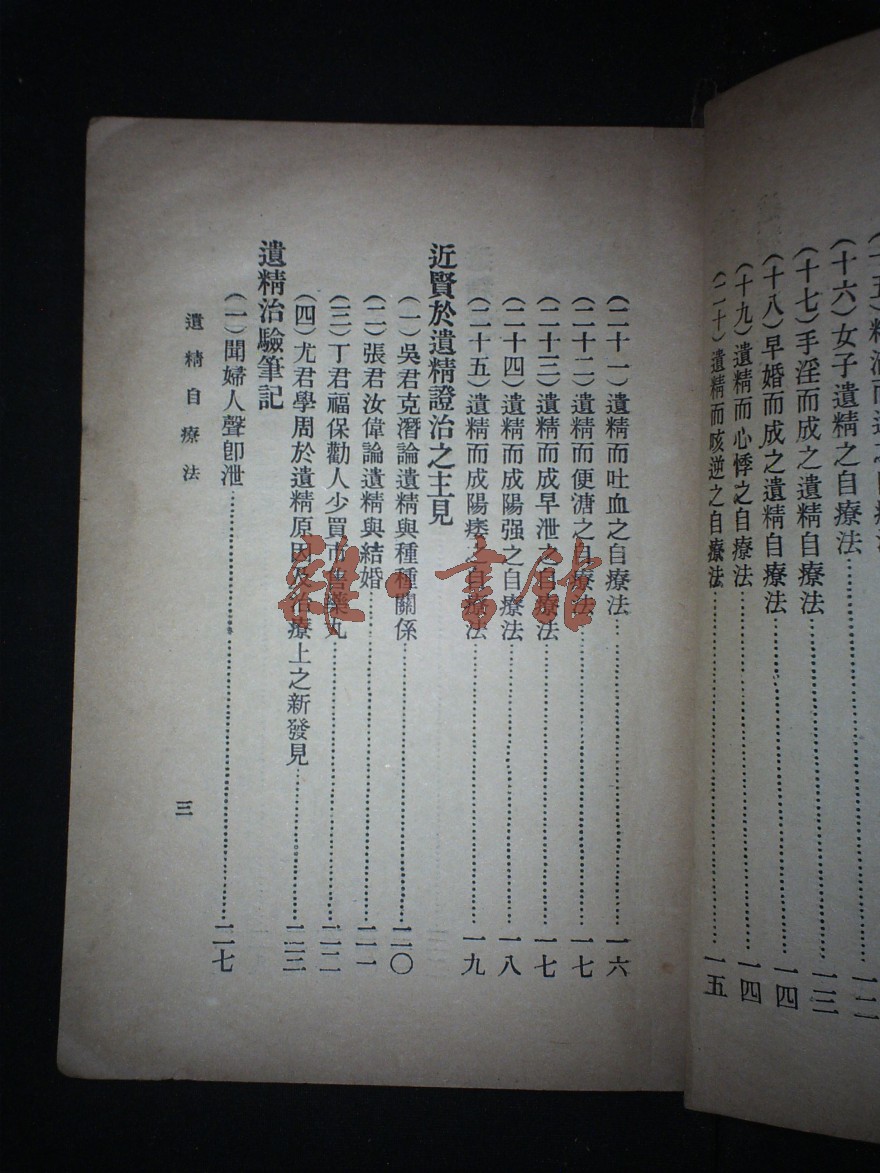 (十六)女子遺精之自療法……一二
(十七)手淫而成之遺精自療法……一三
(十八)早婚而成之遺精自療法……一四
(十九)遺精而心悸之自療法……一四
(二十)遺精而咳逆之自療法……一五
(二十一)遺精而吐血之自療法……一六
(二十二)遺精而便溏之自療法……一七
(二十三)遺精而成早泄之自療法……一七
(二十四)遺精而成陽强之自療法……一八
(二十五)遺精而成陽痿之自療法……一九
近賢於遺精證治之主見
(一)吳君克潛論遺精與種種關係……二〇
(二)張君汝偉論遺精與結婚……二一
(三)丁君福保勸人少買市售藥丸……二二
(四)尤君學周於遺精原因及治療上之新發見……二三
遺精治驗筆記
(一)聞婦人聲卽泄……二七
遺精自療法
三
雜·書館